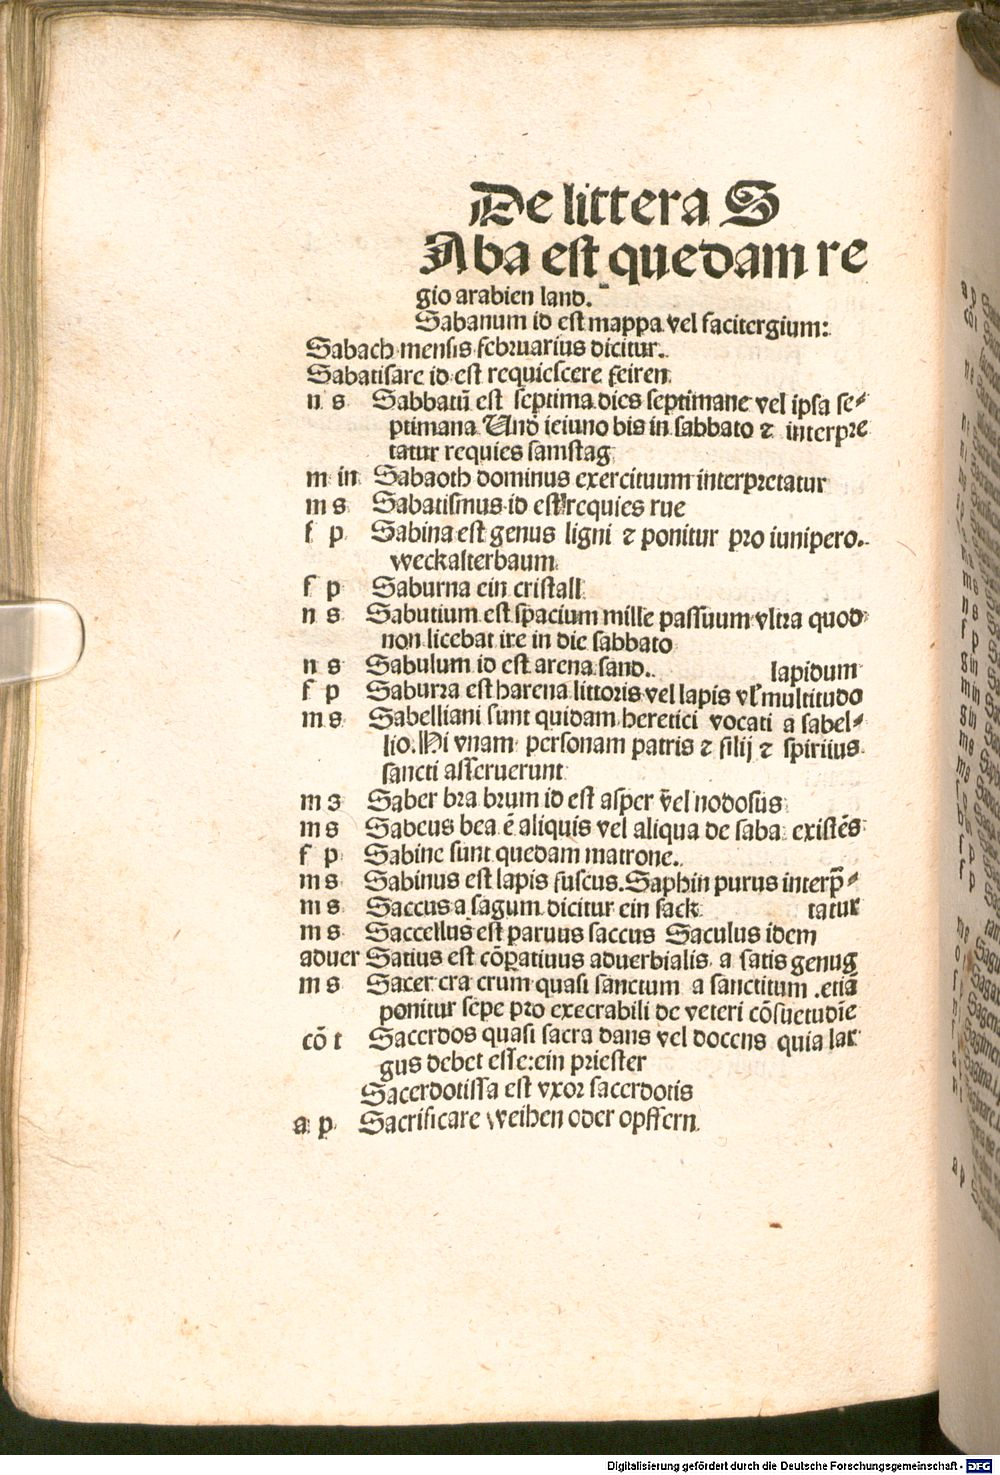 De littera S
Aba est quedam re
gio arabien land.
Sabanum id est mappa vel facitergium:
Sabach mensis februarius dicitur.
Sabatisare id est requiescere feiren
n s Sabbatū est septima dies septimane vel ipsa se⸗
ptimana Und ieiuno bis in sabbato ⁊ interpre
tatur requies samstag
m in Sabaoth dominus exercituum interpretatur
m s Sabatismus id est requies rue
f p Sabina est genus ligni ⁊ ponitur pro iunipero.
weckalterbaum
f p Saburna ein cristall
n s Sabutium est spacium mille passuum vltra quod
non licebat ire in die sabbato
n s Sabulum id est arena sand.. lapidum
f p Saburra est harena littoris vel lapis vl' multitudo
m s Sabelliani sunt quidam heretici vocati a sabel⸗
lio. Hi vnam personam patris ⁊ filij ⁊ spiritus
sancti asseruerunt
m s Saber bra brum id est asper vel nodosus
m s Sabeus bea ē aliquis vel aliqua de saba existēs
f p Sabine sunt quedam matrone.
m s Sabinus est lapis fuscus. Saphin purus interp̄⸗
m s Saccus a sagum dicitur ein sack tatur
m s Saccellus est paruus saccus Saculus idem
aduer Satius est cōparatiuus aduerbialis a satis genug
m s Sacer cra crum quasi sanctum a sanctitum .etiā
ponitur sepe pro execrabili de veteri cōsuetudīe
cō t Sacerdos quasi sacra dans vel docens quia lar
gus debet esse: ein priester
Sacerdotissa est vxor sacerdotis
a p Sacrificare weihen oder opffern.
Digitalisierung gefördert durch die Deutsche Forschungsgemeinschaft - DFG